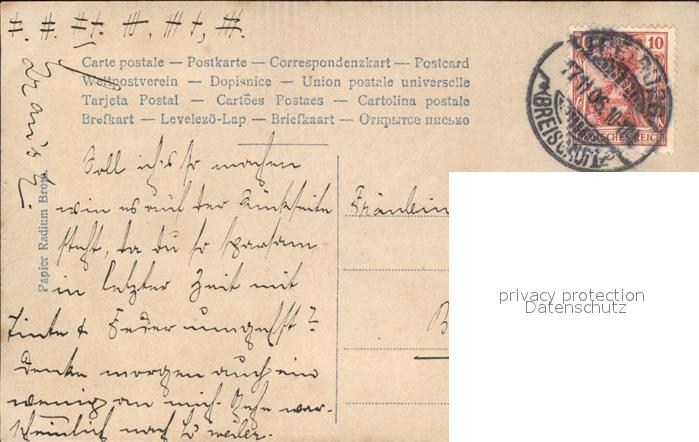 Carte postale — Postkarte — Correspondenzkart — Postcard
Weltpostverein — Dopisnice — Union postale universelle
Tarjeta Postal — Cartões Postaes — Cartolina postale
Brefkart — Levelező-Lap — Briefkaart — Открытое письмо
10
DEUTSCHES REICH
17.11.06. 10
(BREISGAU)
Papier Radium Brom.
Soll ich's so machen
wie es auf der Rückseite
steht, da du so sparsam
in letzter Zeit mit
Tinte & Feder umgehst?
Denke morgen auch ein
wenig an mich. Gehe war-
scheinlich nach
Fräulein
B
privacy protection
Datenschutz